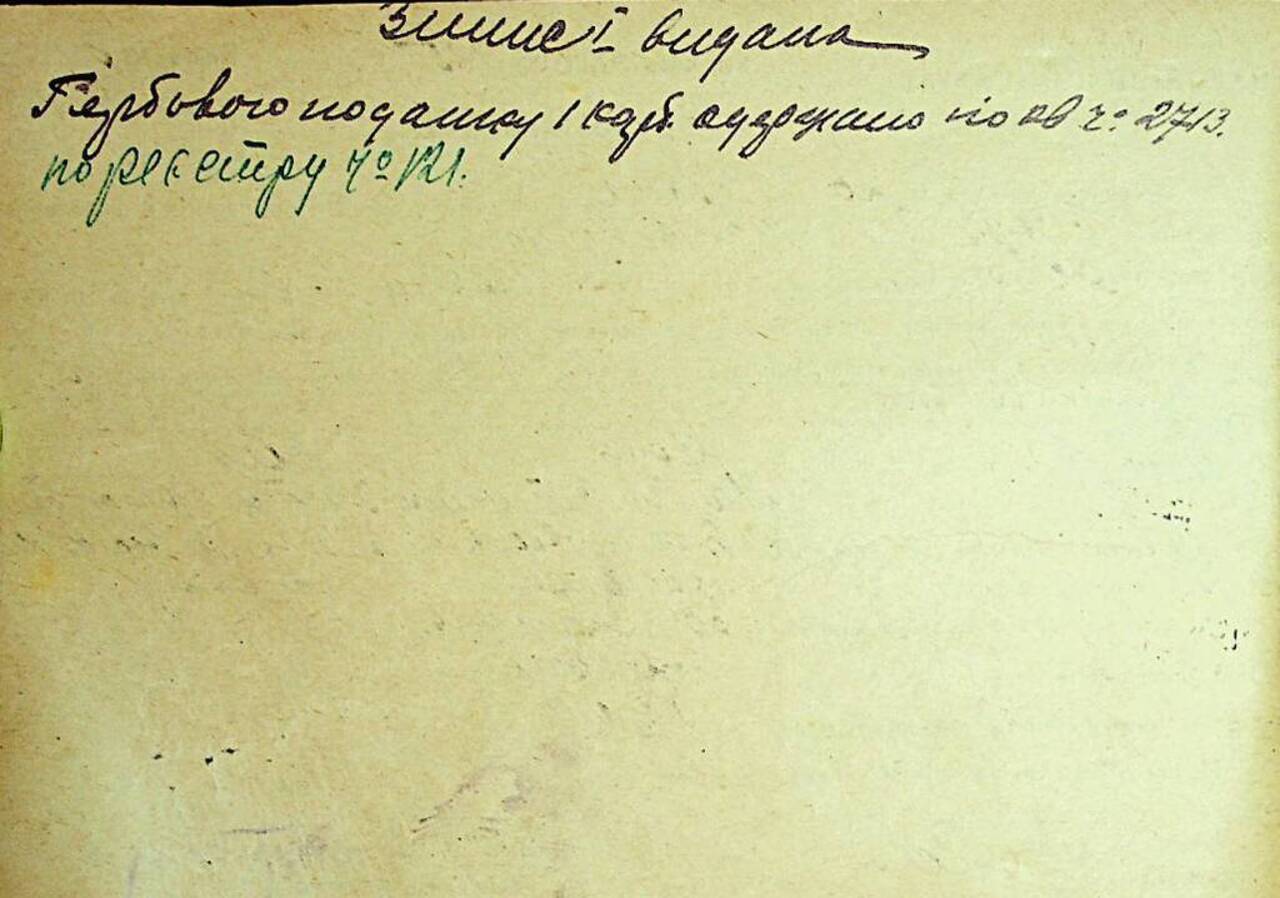 Виписі видана
Гербового податку 1 карб. одержано по кв ч° 2713.
по реєстру ч° 121.